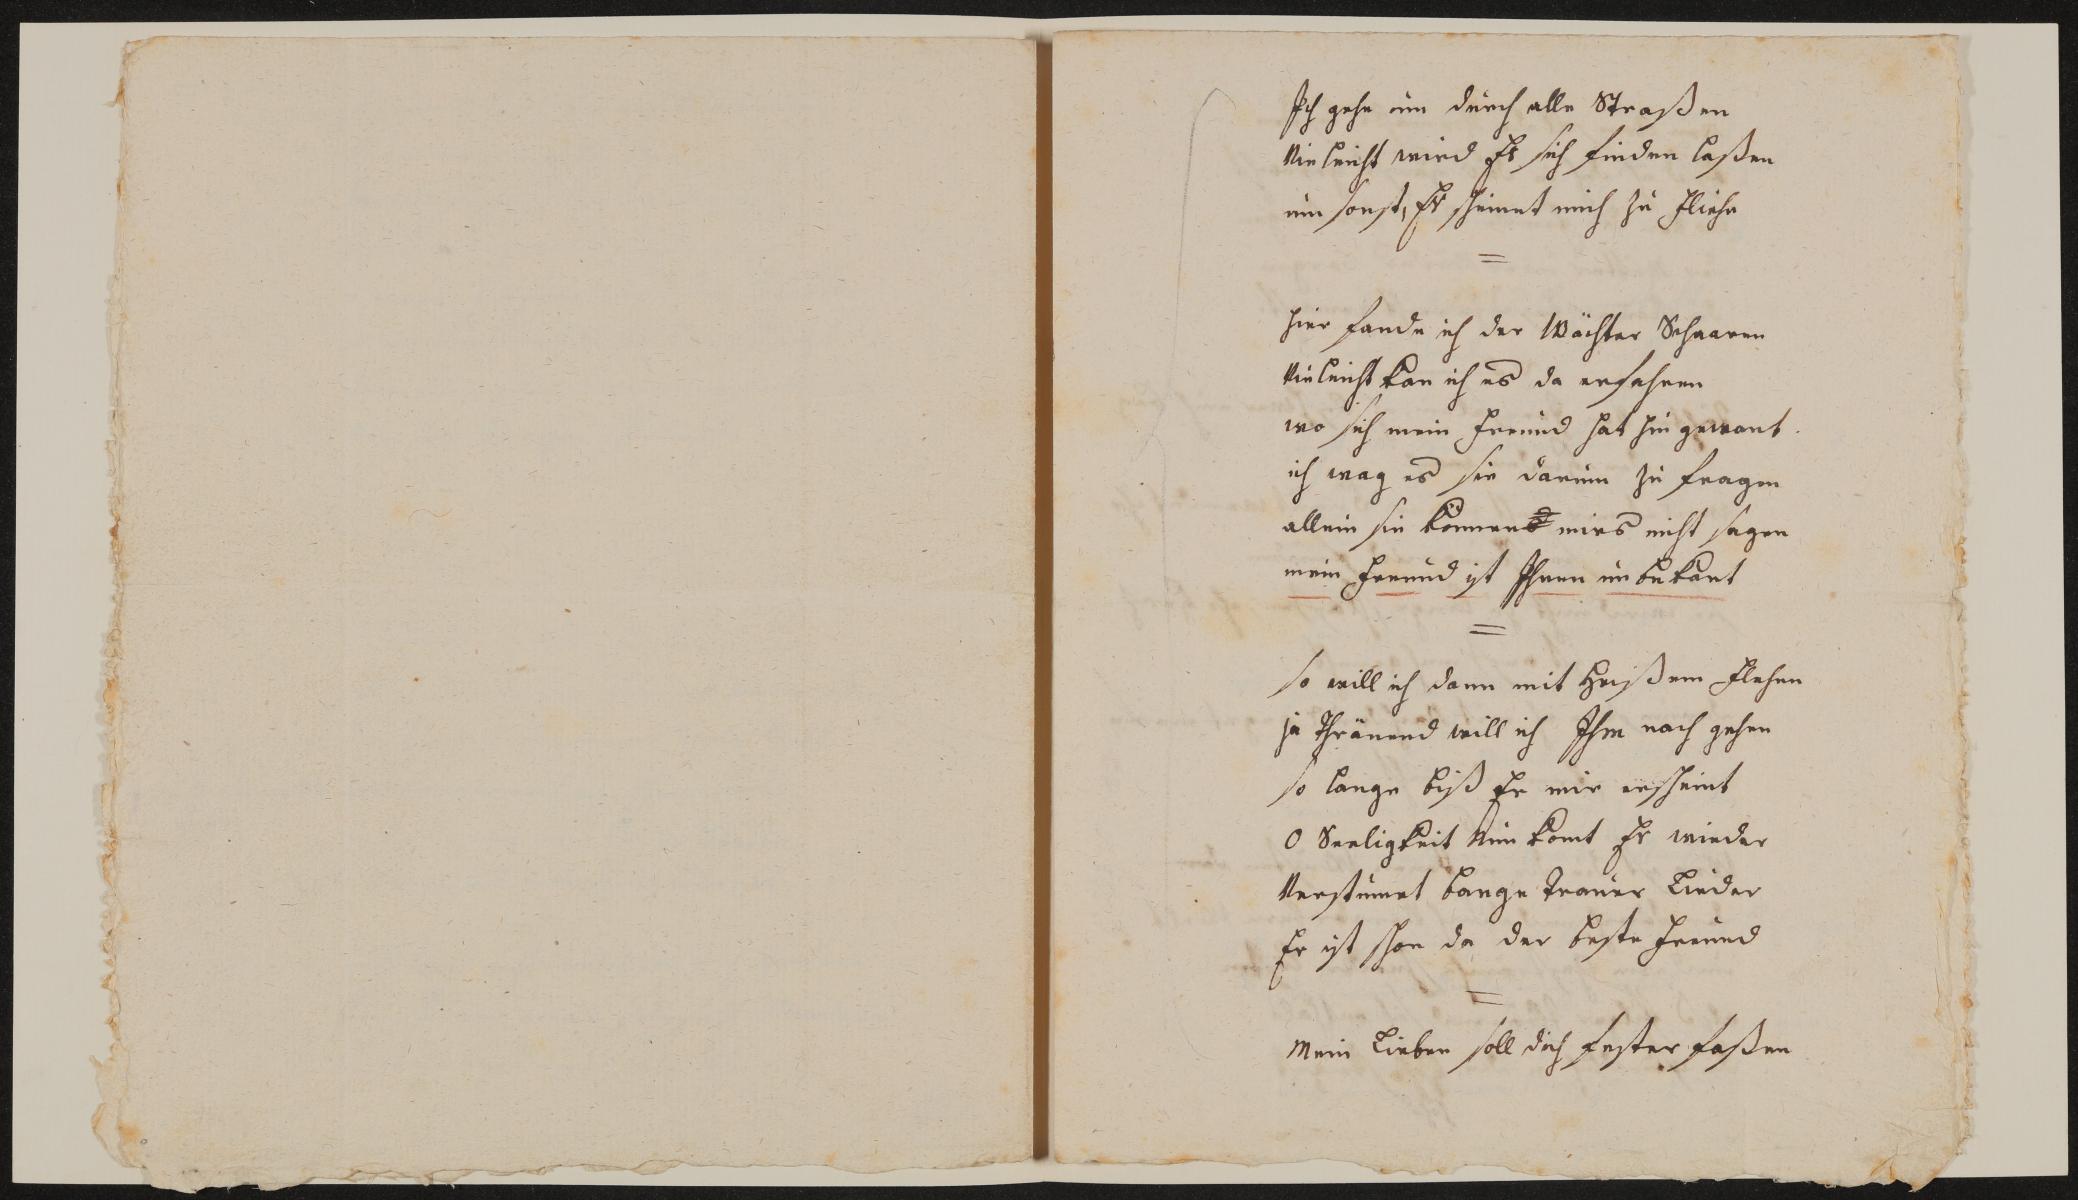 Ich gehe um durch alle Straßen
Vieleicht wird Er sich finden laßen
um sonst, Er scheinet mich zu Fliehn
=
hier fande ich der Wächter Schaaren
Vieleicht kan ich es da erfahren
wo sich mein Freund hat hin gewant.
ich wag es sie darum zu fragen
allein sie können mirs nicht sagen
mein Freund ist Ihnen unbekant
=
so will ich dann mit Heißem Flehen
ja Thränend will ich Ihm nach gehen
so lange biß Er mir erscheint
O Seeligkeit Nun komt Er wieder
Verstumet bange Trauer Lieder
Er ist schon da der beste Freund
=
Mein Lieben soll dich fester faßen